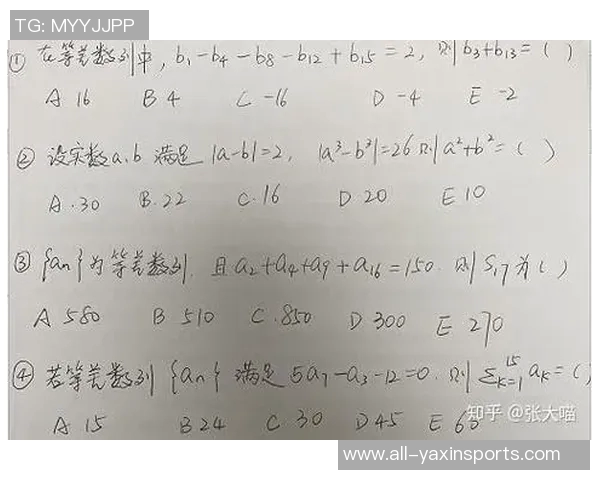 TG: MYYJJPP
① 在等差数列中, b₁-b₄-b₈-b₁₂+b₁₅=2, 则b₃+b₁₃=( )
A 16 B 4 C -16 D -4 E -2
② 设实数a、b 满足 |a-b|=2, |a³-b³|=26 则 a²+b²=( )
A.30 B.22 C.16 D 20 E 10
③ {an}为等差数列. 且a₂+a₄+a₉+a₁₆=150. 则 S₁₇为( )
A 580 B 510 C.850 D 300 E 270
④ 若等差数列{an}满足5a₇-a₃-12=0. 则 Σ¹⁵ₖ₌₁ aₖ=( )
A 15 B 24 C 30 D 45 E 60
知乎 @张大喵
www.all-yaxinsports.com/